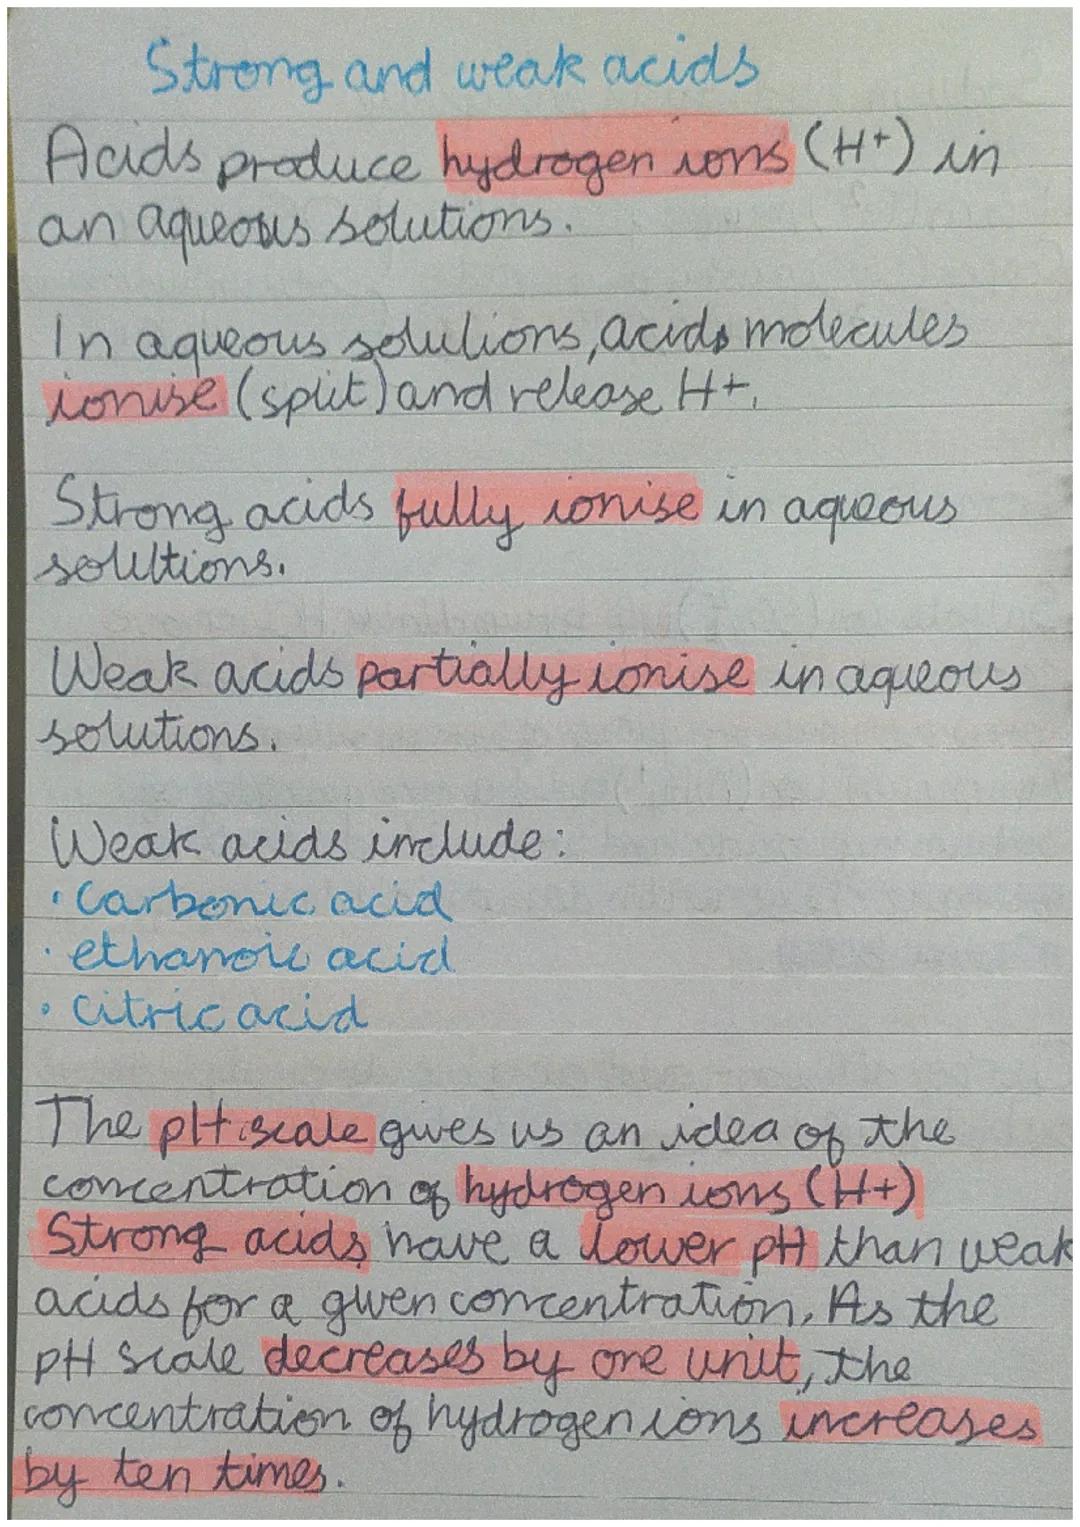 Strong and weak acids
Acids produce hydrogen ions (H+) in
an aqueous solutions.
In aqueous solutions, acids molecules
ionise (split) and release H+.
Strong acids fully ionise in aqueous
solutions.
Weak acids partially ionise in aqueous
solutions.
Weak acids include:
· Carbonic acid
· ethanoic acid
· Citric acid
The pH scale gives us an idea of the
concentration of hydrogen ions (H+)
Strong acids have a lower pH than weak
acids for a given concentration. As the
pH scale decreases by one unit, the
concentration of hydrogen ions increases
by ten times.